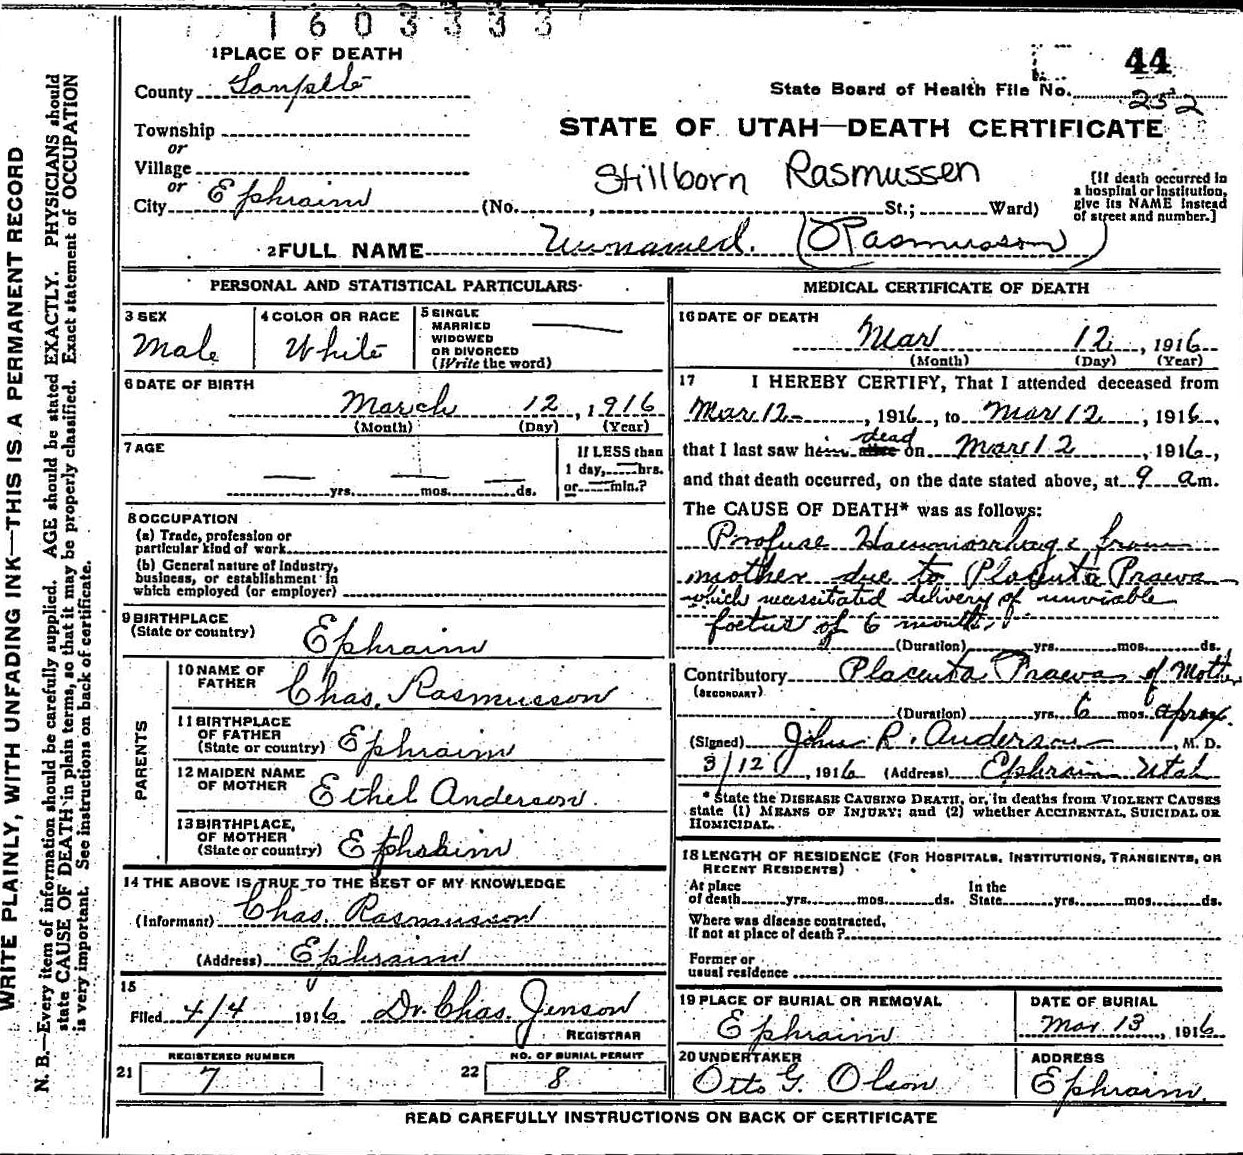 1603333
1 PLACE OF DEATH
44
County Sanpete
State Board of Health File No. 252
Township
or
STATE OF UTAH—DEATH CERTIFICATE
Village
or
Stillborn Rasmussen
City Ephraim (No. , St.; Ward)
[If death occurred in
a hospital or institution,
give its NAME instead
of street and number.]
2 FULL NAME Unnamed. (Rasmusson)
PERSONAL AND STATISTICAL PARTICULARS
3 SEX
Male
4 COLOR OR RACE
White
5 SINGLE
MARRIED
WIDOWED
OR DIVORCED
(Write the word)
6 DATE OF BIRTH
March 12, 1916
(Month) (Day) (Year)
7 AGE
yrs. mos. ds.
If LESS than
1 day, hrs.
or min.?
8 OCCUPATION
(a) Trade, profession or
particular kind of work
(b) General nature of Industry,
business, or establishment in
which employed (or employer)
9 BIRTHPLACE
(State or country) Ephraim
PARENTS
10 NAME OF
FATHER Chas. Rasmusson
11 BIRTHPLACE
OF FATHER
(State or country) Ephraim
12 MAIDEN NAME
OF MOTHER Ethel Anderson.
13 BIRTHPLACE,
OF MOTHER
(State or country) Ephraim
14 THE ABOVE IS TRUE TO THE BEST OF MY KNOWLEDGE
(Informant) Chas. Rasmusson
(Address) Ephraim
15
Filed 4/4 1916 Dr. Chas. Jenson
REGISTRAR
REGISTERED NUMBER
21 7
NO. OF BURIAL PERMIT
22 8
MEDICAL CERTIFICATE OF DEATH
16 DATE OF DEATH
Mar 12, 1916
(Month) (Day) (Year)
17 I HEREBY CERTIFY, That I attended deceased from
Mar 12, 1916, to Mar 12, 1916,
that I last saw him alive dead on Mar 12, 1916,
and that death occurred, on the date stated above, at 9 a m.
The CAUSE OF DEATH* was as follows:
Profuse Haemorrhage from
mother due to Placenta Praevia
which necessitated delivery of unviable
foetus of 6 months.
(Duration) yrs. mos. ds.
Contributory Placenta Praevia of Mother
(SECONDARY)
(Duration) yrs. 6 mos. aprox.
(Signed) John R. Anderson, M. D.
3/12, 1916 (Address) Ephraim Utah
* State the DISEASE CAUSING DEATH, or, in deaths from VIOLENT CAUSES
state (1) MEANS OF INJURY; and (2) whether ACCIDENTAL, SUICIDAL OR
HOMICIDAL.
18 LENGTH OF RESIDENCE (FOR HOSPITALS, INSTITUTIONS, TRANSIENTS, OR
RECENT RESIDENTS)
At place
of death yrs. mos. ds.
In the
State yrs. mos. ds.
Where was disease contracted,
if not at place of death?
Former or
usual residence
19 PLACE OF BURIAL OR REMOVAL
Ephraim
DATE OF BURIAL
Mar 13, 1916
20 UNDERTAKER
Otto G. Olson
ADDRESS
Ephraim.
READ CAREFULLY INSTRUCTIONS ON BACK OF CERTIFICATE
WRITE PLAINLY, WITH UNFADING INK—THIS IS A PERMANENT RECORD
N. B.—Every item of information should be carefully supplied. AGE should be stated EXACTLY. PHYSICIANS should
state CAUSE OF DEATH in plain terms, so that it may be properly classified. Exact statement of OCCUPATION
is very important. See instructions on back of certificate.